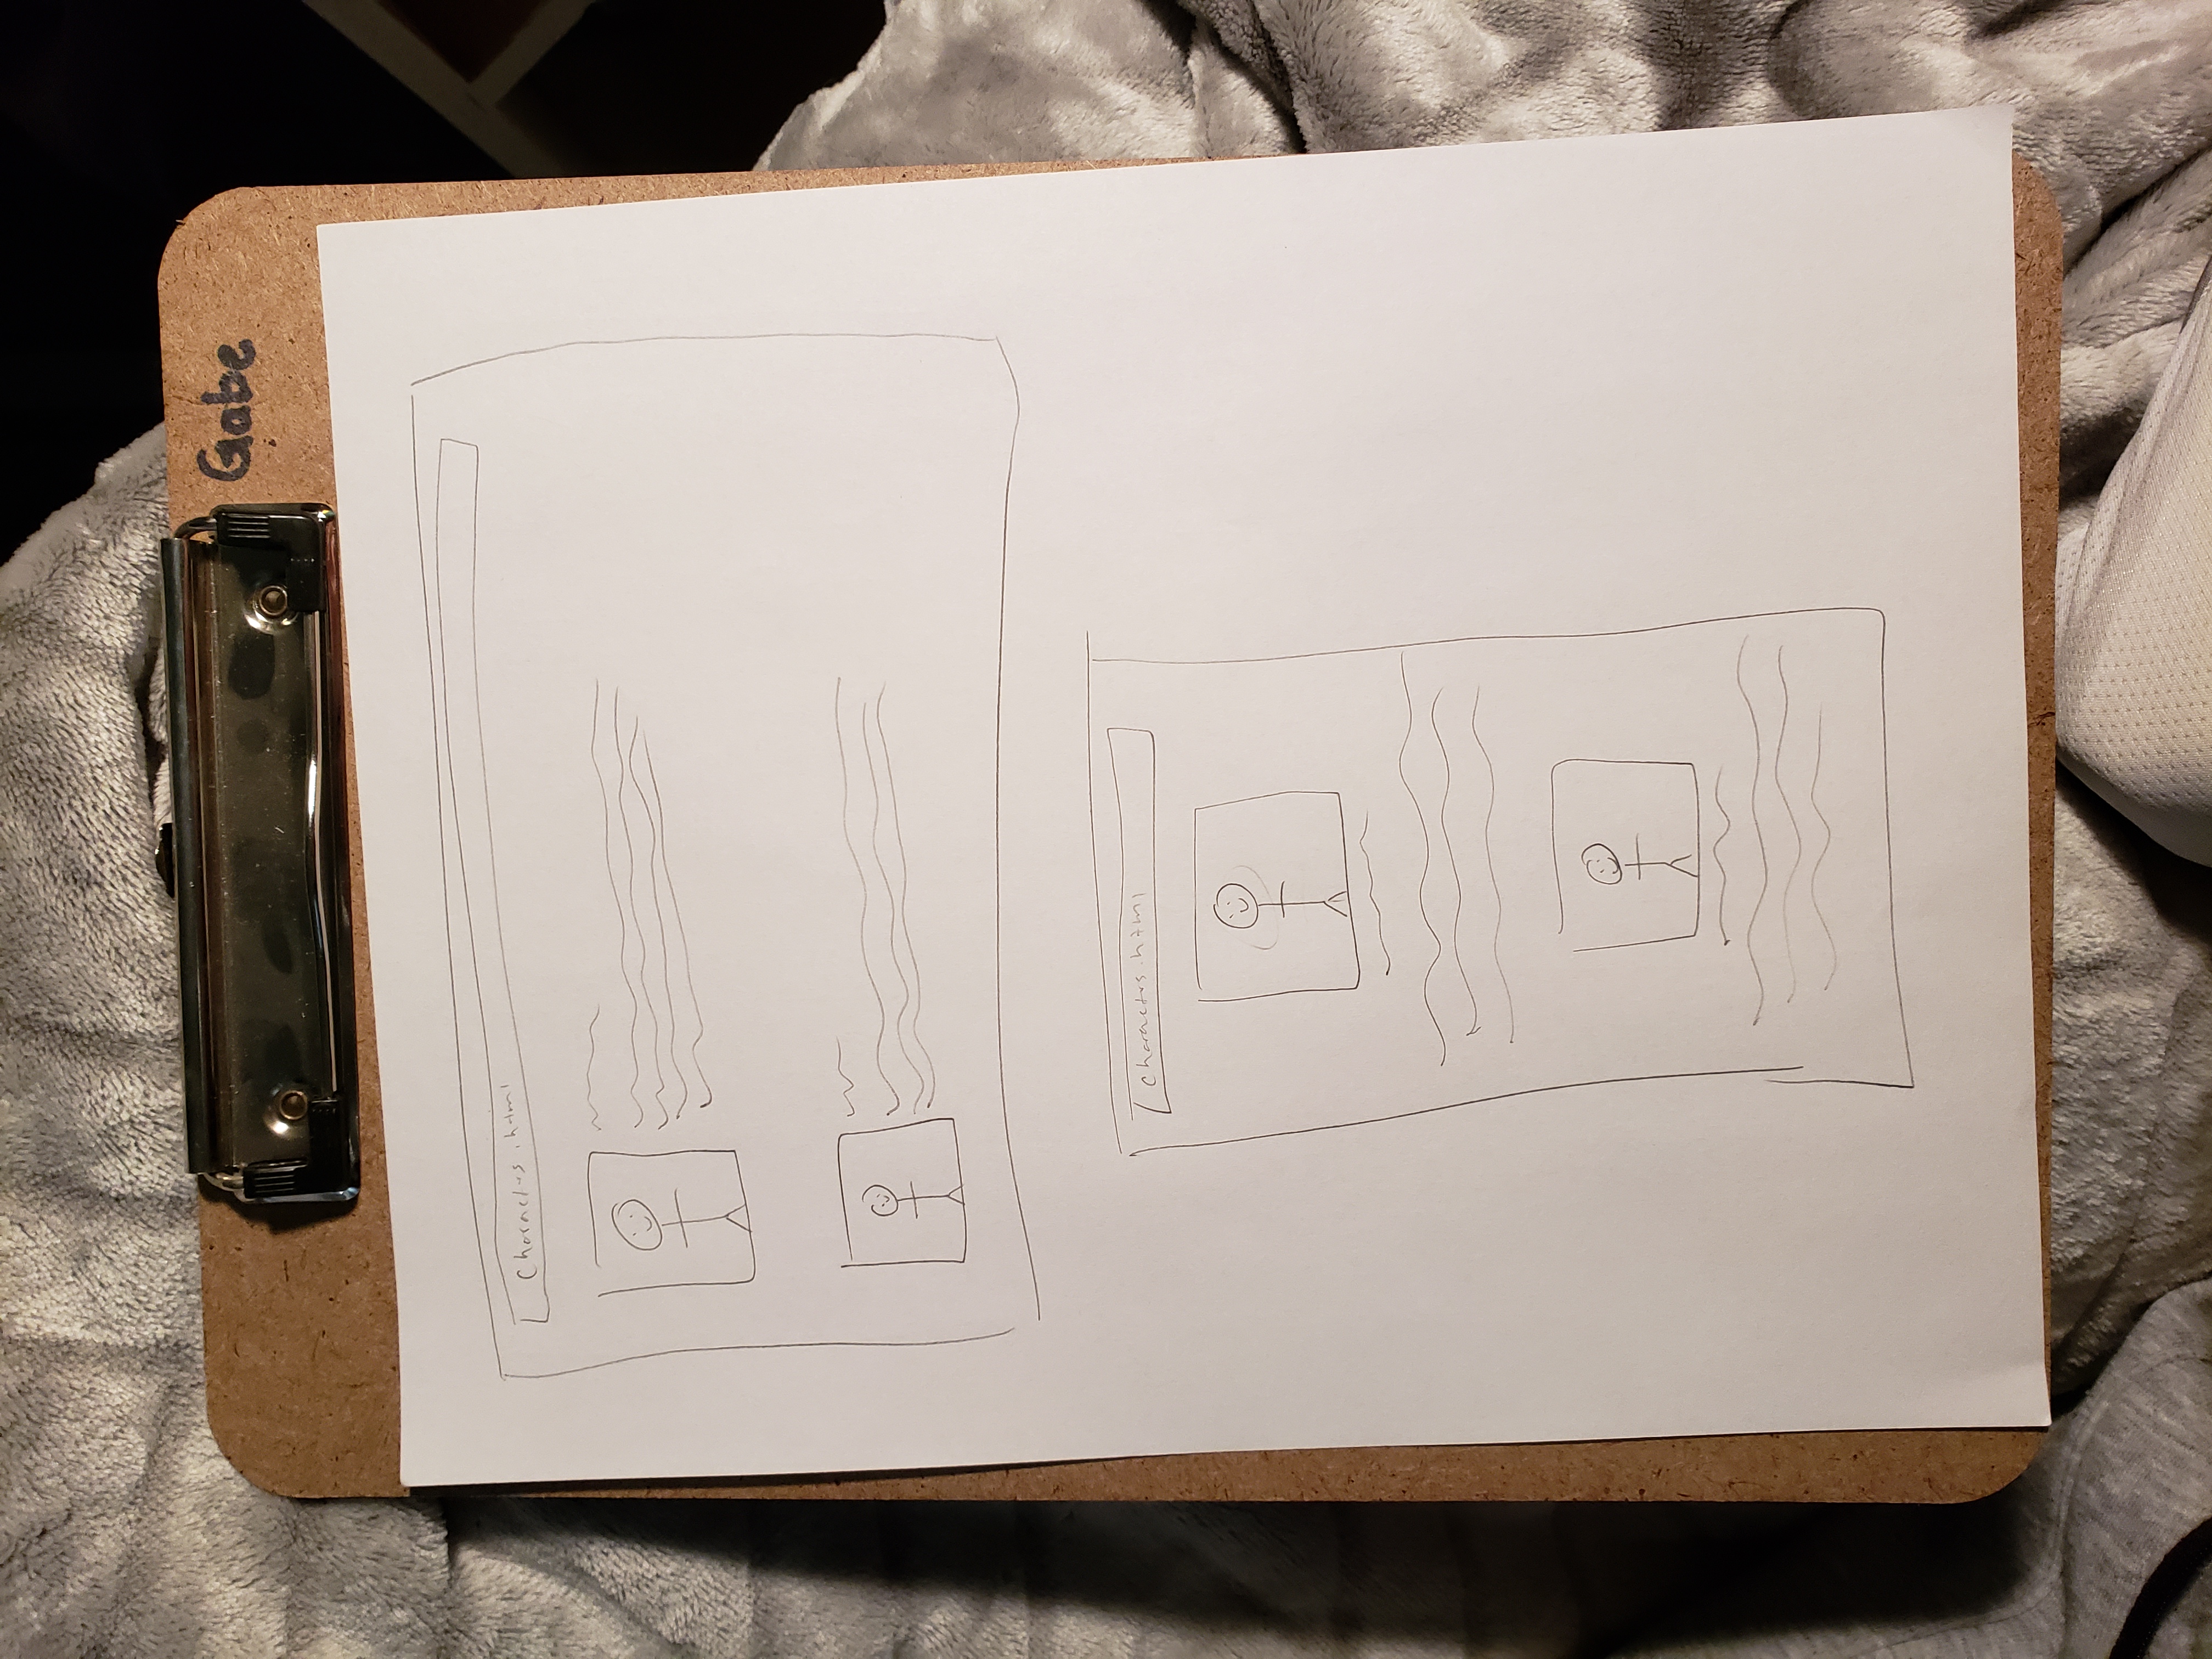 Gabe
Characters.html
Characters.html